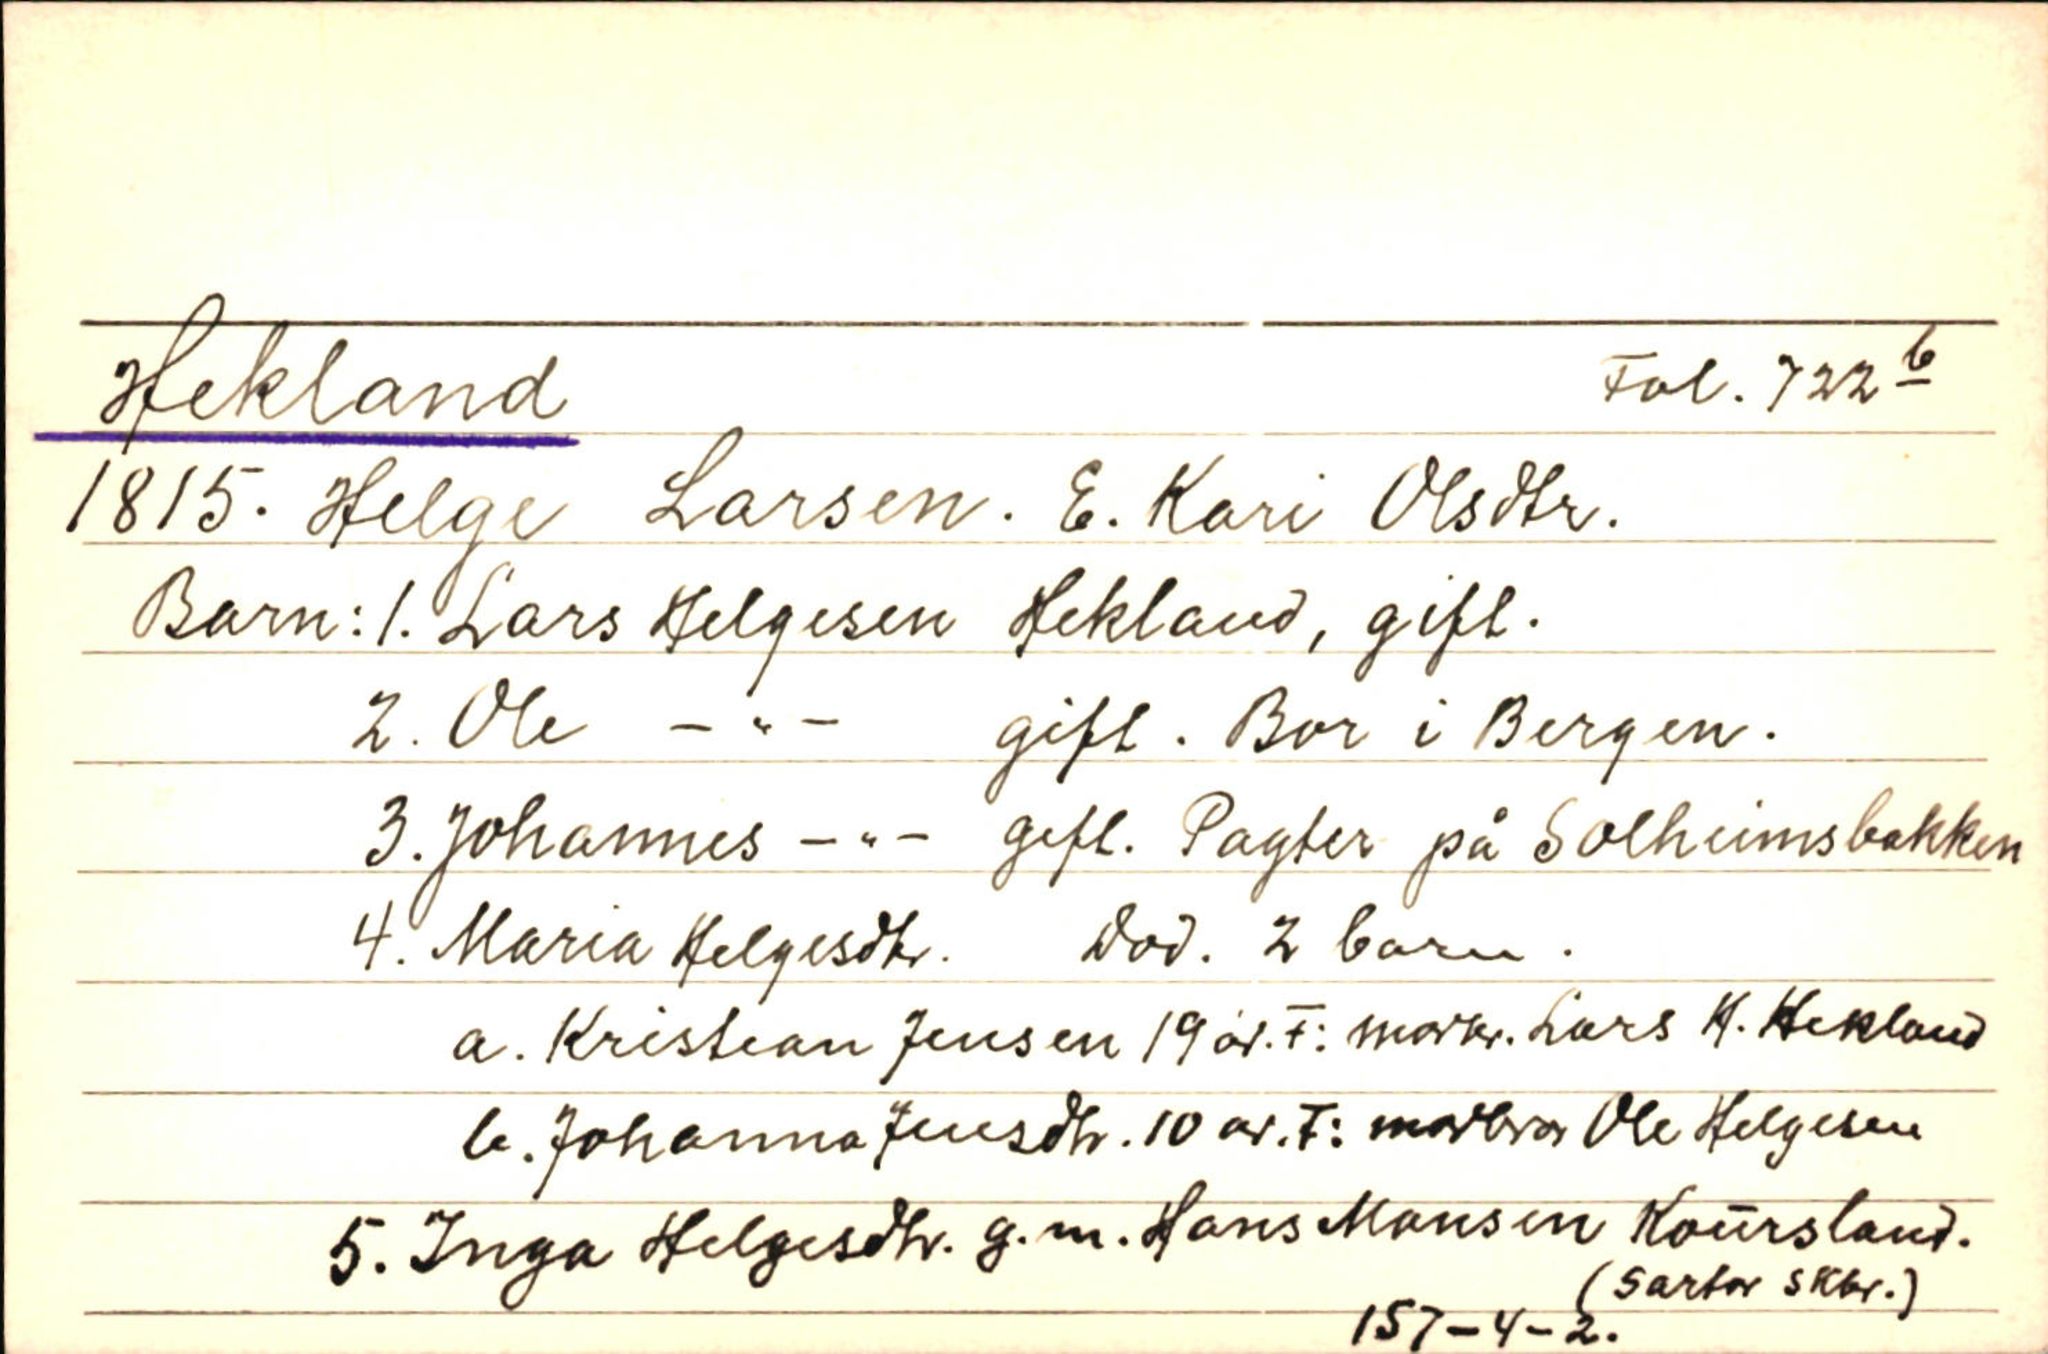 Hekland Fol. 722 b
1815. Helge Larsen. E. Kari Olsdtr.
Barn: 1. Lars Helgesen Hekland, gift.
2. Ole -"- gift. Bor i Bergen.
3. Johannes -"- gift. Pagter på Solheimsbakken
4. Maria Helgesdtr. Död. 2 barn.
a. Kristian Jensen 19 år. F: morbr. Lars H. Hekland
b. Johanna Jensdtr. 10 år. F: morbror Ole Helgesen
5. Inga Helgesdtr. g. m. Hans Monsen Koursland.
(Sartor skbr.)
157-4-2.